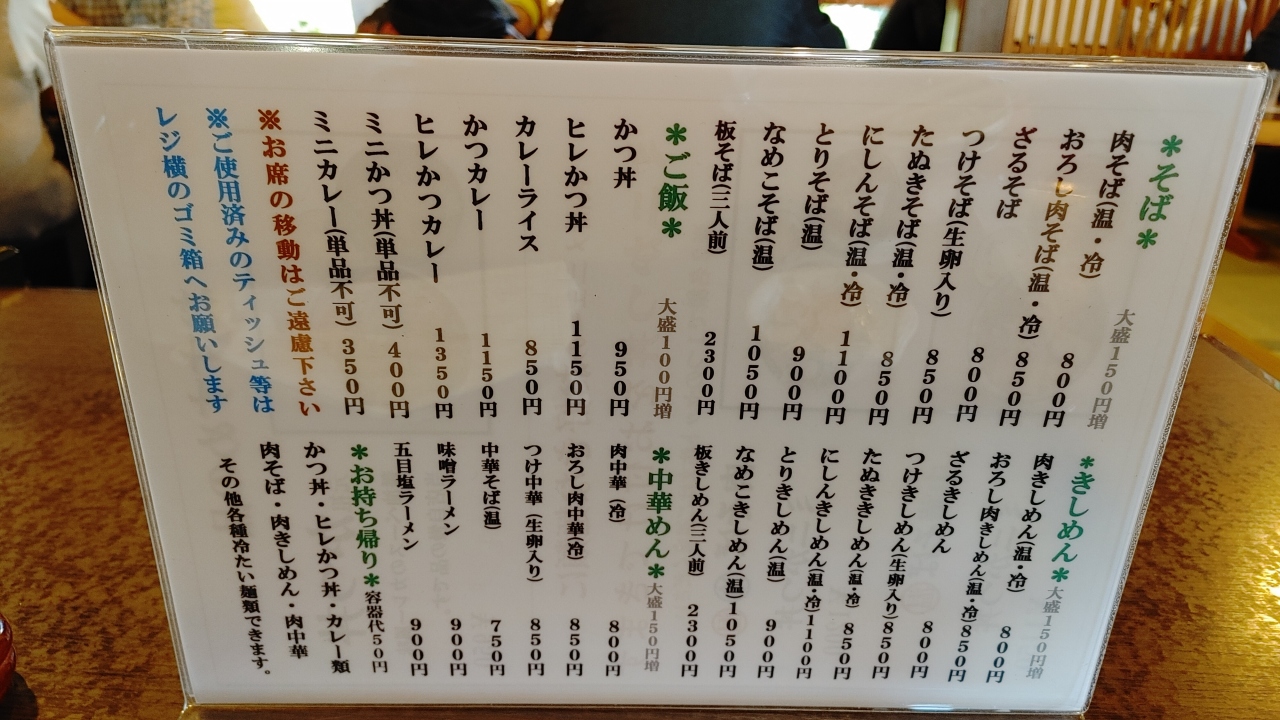 ＊そば＊ 大盛150円増
肉そば(温・冷) 800円
おろし肉そば(温・冷) 850円
ざるそば 800円
つけそば(生卵入り) 850円
たぬきそば(温・冷) 850円
にしんそば(温・冷) 1100円
とりそば(温) 900円
なめこそば(温) 1050円
板そば(三人前) 2300円
＊ご飯＊ 大盛100円増
かつ丼 950円
ヒレかつ丼 1150円
カレーライス 850円
かつカレー 1150円
ヒレかつカレー 1350円
ミニかつ丼(単品不可) 400円
ミニカレー(単品不可) 350円
※お席の移動はご遠慮下さい
※ご使用済みのティッシュ等は
レジ横のゴミ箱へお願いします
＊きしめん＊ 大盛150円増
肉きしめん(温・冷) 800円
おろし肉きしめん(温・冷) 850円
ざるきしめん 800円
つけきしめん(生卵入り) 850円
たぬききしめん(温・冷) 850円
にしんきしめん(温・冷) 1100円
とりきしめん(温) 900円
なめこきしめん(温) 1050円
板きしめん(三人前) 2300円
＊中華めん＊ 大盛150円増
肉中華(冷) 800円
おろし肉中華(冷) 850円
つけ中華(生卵入り) 850円
中華そば(温) 750円
味噌ラーメン 900円
五目塩ラーメン 900円
＊お持ち帰り＊ 容器代50円
かつ丼・ヒレかつ丼・カレー類
肉そば・肉きしめん・肉中華
その他各種冷たい麺類できます。